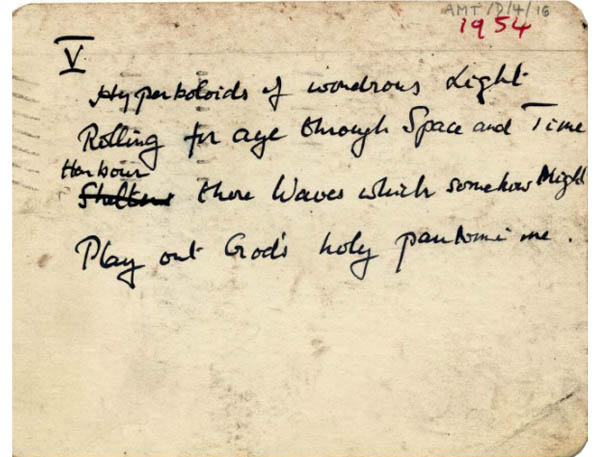 AMT/D/4/16
1954
V
Hyperboloids of wondrous Light
Rolling for aye through Space and Time
Harbour
those Waves which somehow Might
Play out God's holy pantomime.